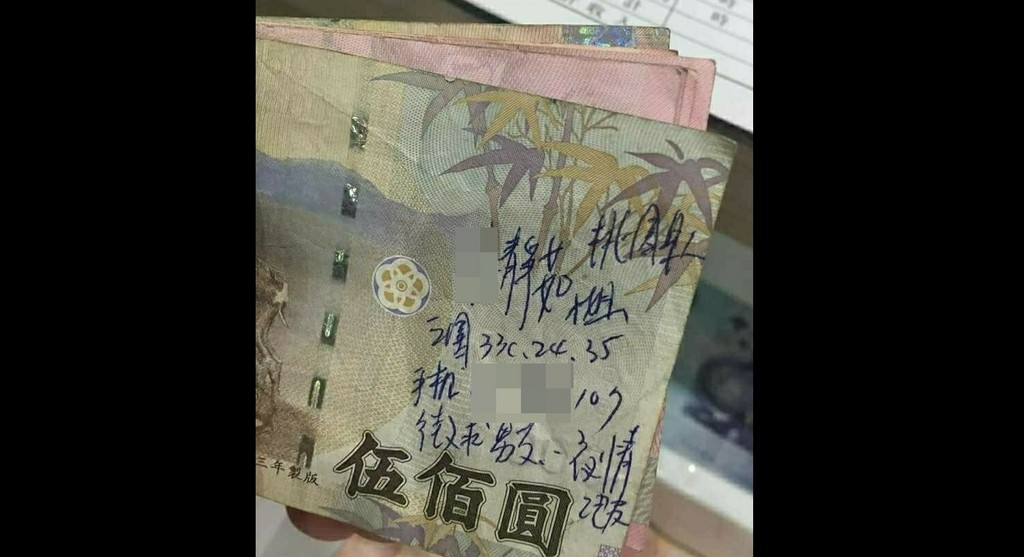 靜茹 桃園縣
三圍 33C.24.35
手機. 107
徵求男友.一夜情
砲友
三年製版
伍佰圓